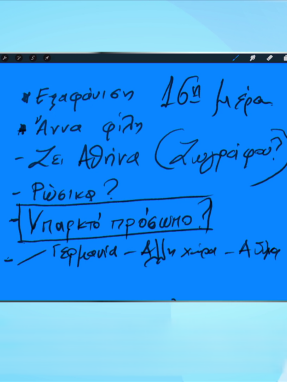 * Εξαφάνιση 16η μέρα
* Άννα φίλη
- Ζει Αθήνα (Ζωγράφου?)
- Ρώσικα?
- Υπαρκτό πρόσωπο?
- Γερμανία - Άλλη χώρα -